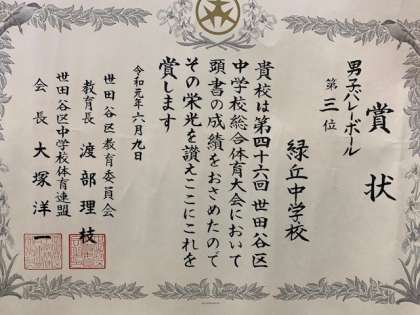 賞状
男子バレーボール
第三位
緑丘中学校
貴校は第四十六回世田谷区
中学校総合体育大会において
頭書の成績をおさめたので
その栄光を讃えここにこれを
賞します
令和元年六月九日
世田谷区教育委員会
教育長 渡部理枝
世田谷区中学校体育連盟
会長 大塚洋一